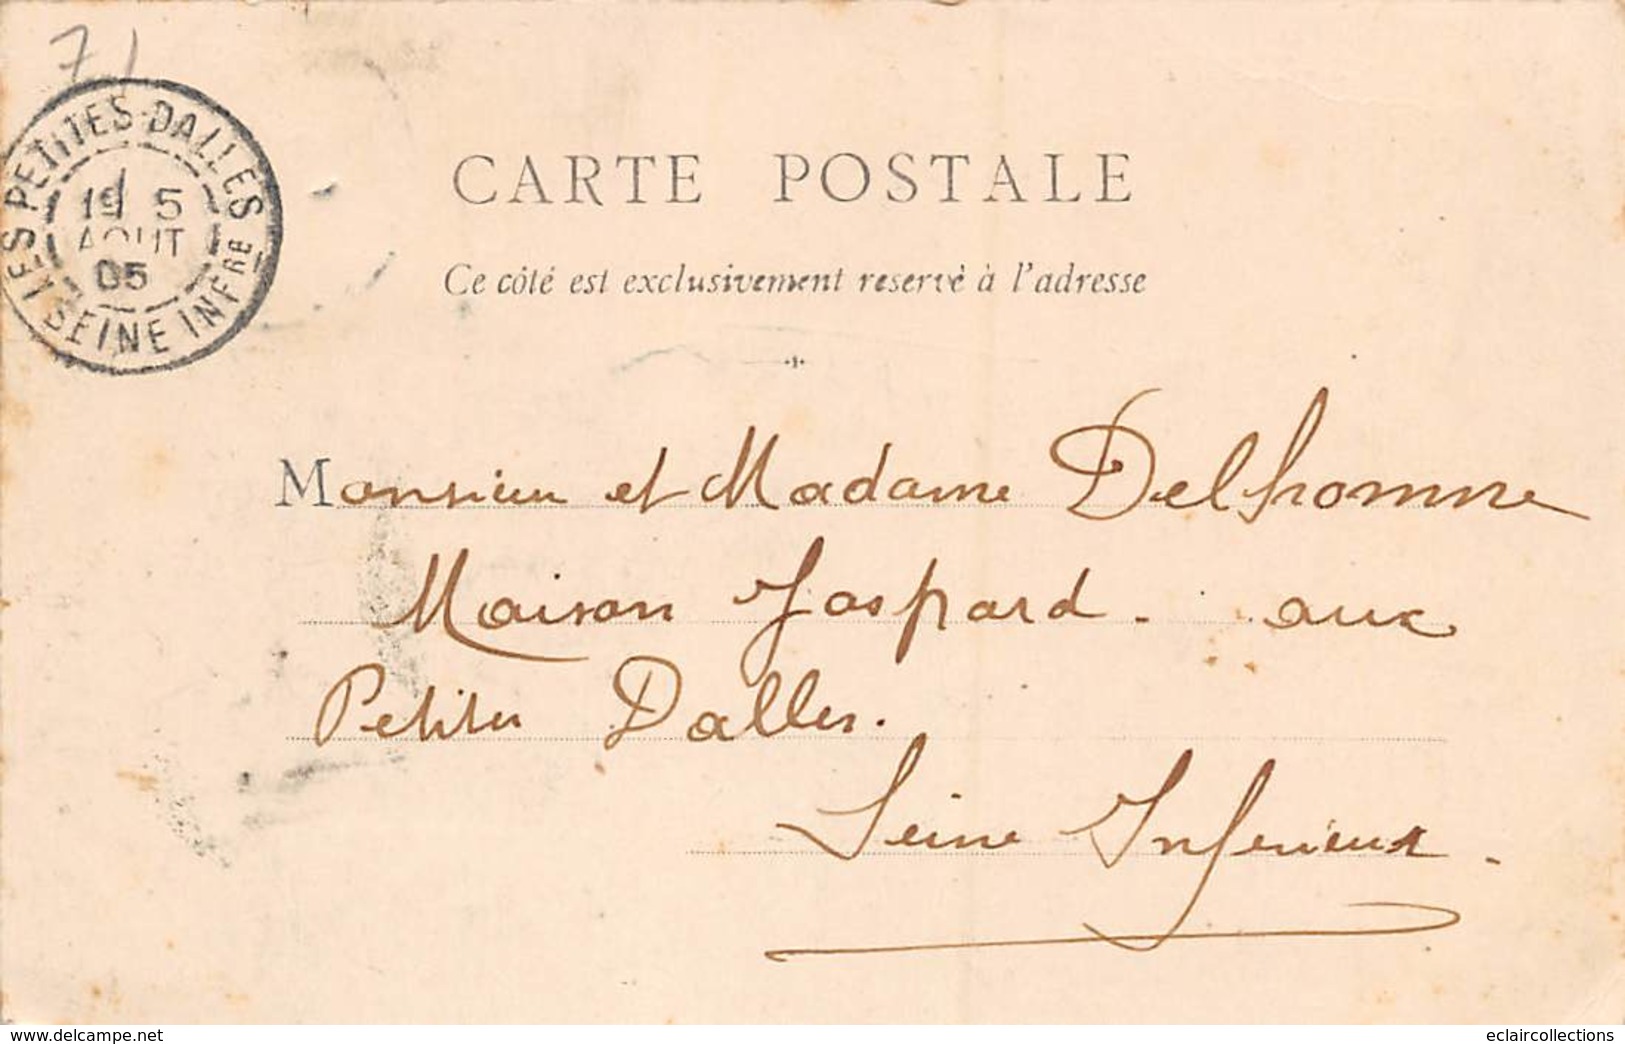 71
LES PETITES-DALLES
19 5
AOUT
05
SEINE INFRE
CARTE POSTALE
Ce côté est exclusivement reservé à l'adresse
Monsieur et Madame Delhomme
Maison Gaspard. aux
Petites Dalles.
Seine Inferieure.
www.delcampe.net
eclaircollections